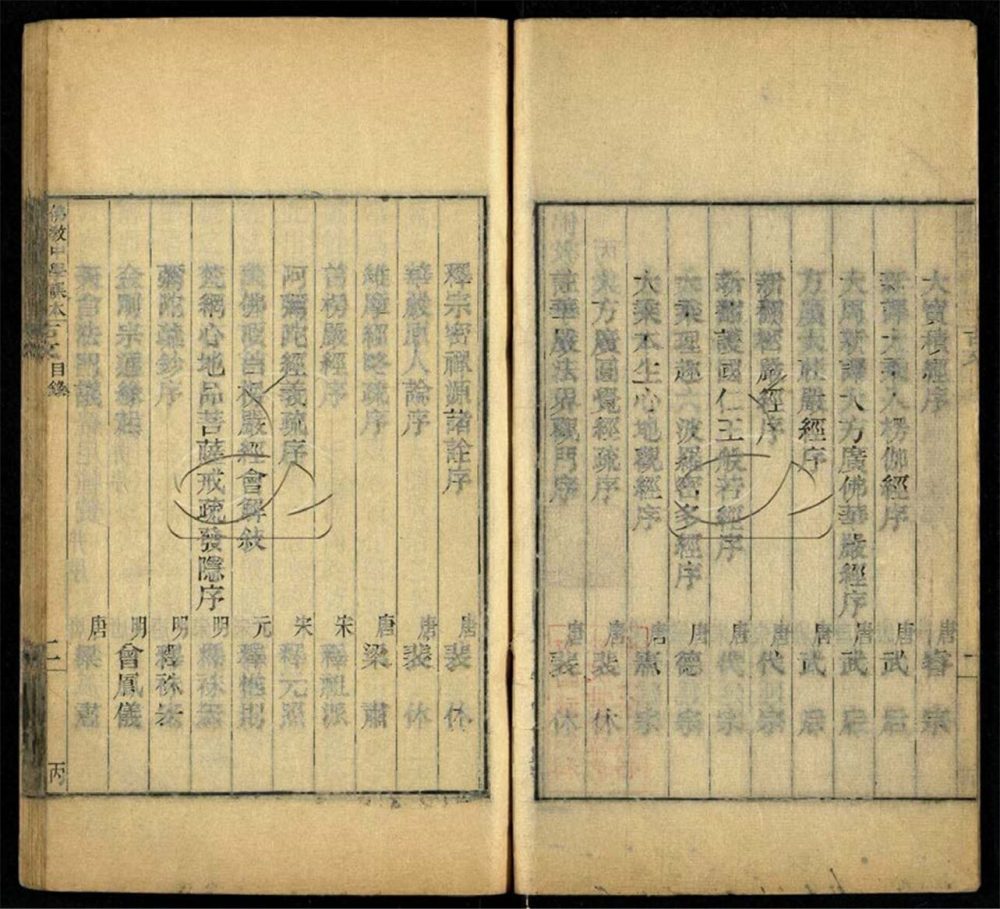 大寶積經序 唐 睿宗
新譯大乘入楞伽經序 唐 武后
大周新譯大方廣佛華嚴經序 唐 武后
方廣大莊嚴經序 唐 武后
新翻密嚴經序 唐 代宗
新翻護國仁王般若經序 唐 代宗
大乘理趣六波羅密多經序 唐 德宗
大乘本生心地觀經序 唐 憲宗
大方廣圓覺經疏序 唐 裴休
註華嚴法界觀門序 唐 裴休
釋宗密禪源諸詮序 唐 裴休
華嚴原人論序 唐 裴休
維摩經略疏序 唐 梁肅
首楞嚴經序 宋 釋祖派
阿彌陀經義疏序 宋 釋元照
佛頂首楞嚴經會解敘 元 釋惟則
梵網心地品菩薩戒疏發隱序 明 釋袾宏
彌陀疏鈔序 明 釋袾宏
金剛宗通緣起 明 會鳳儀
天台法門議 唐 梁肅
佛教中學課本古文目錄 二 丙